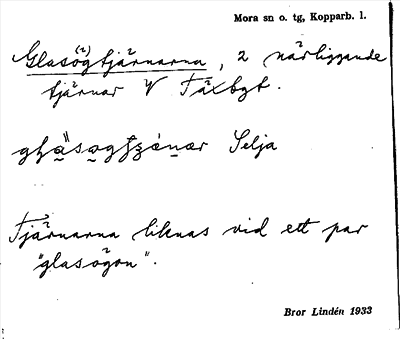 Mora sn o. tg, Kopparb. l.
Glasög(2)tjärnarna, 2 närliggande
tjärnar V Fäxbgt.
Selja
Tjärnarna liknas vid ett par
"glasögon".
Bror Lindén 1933